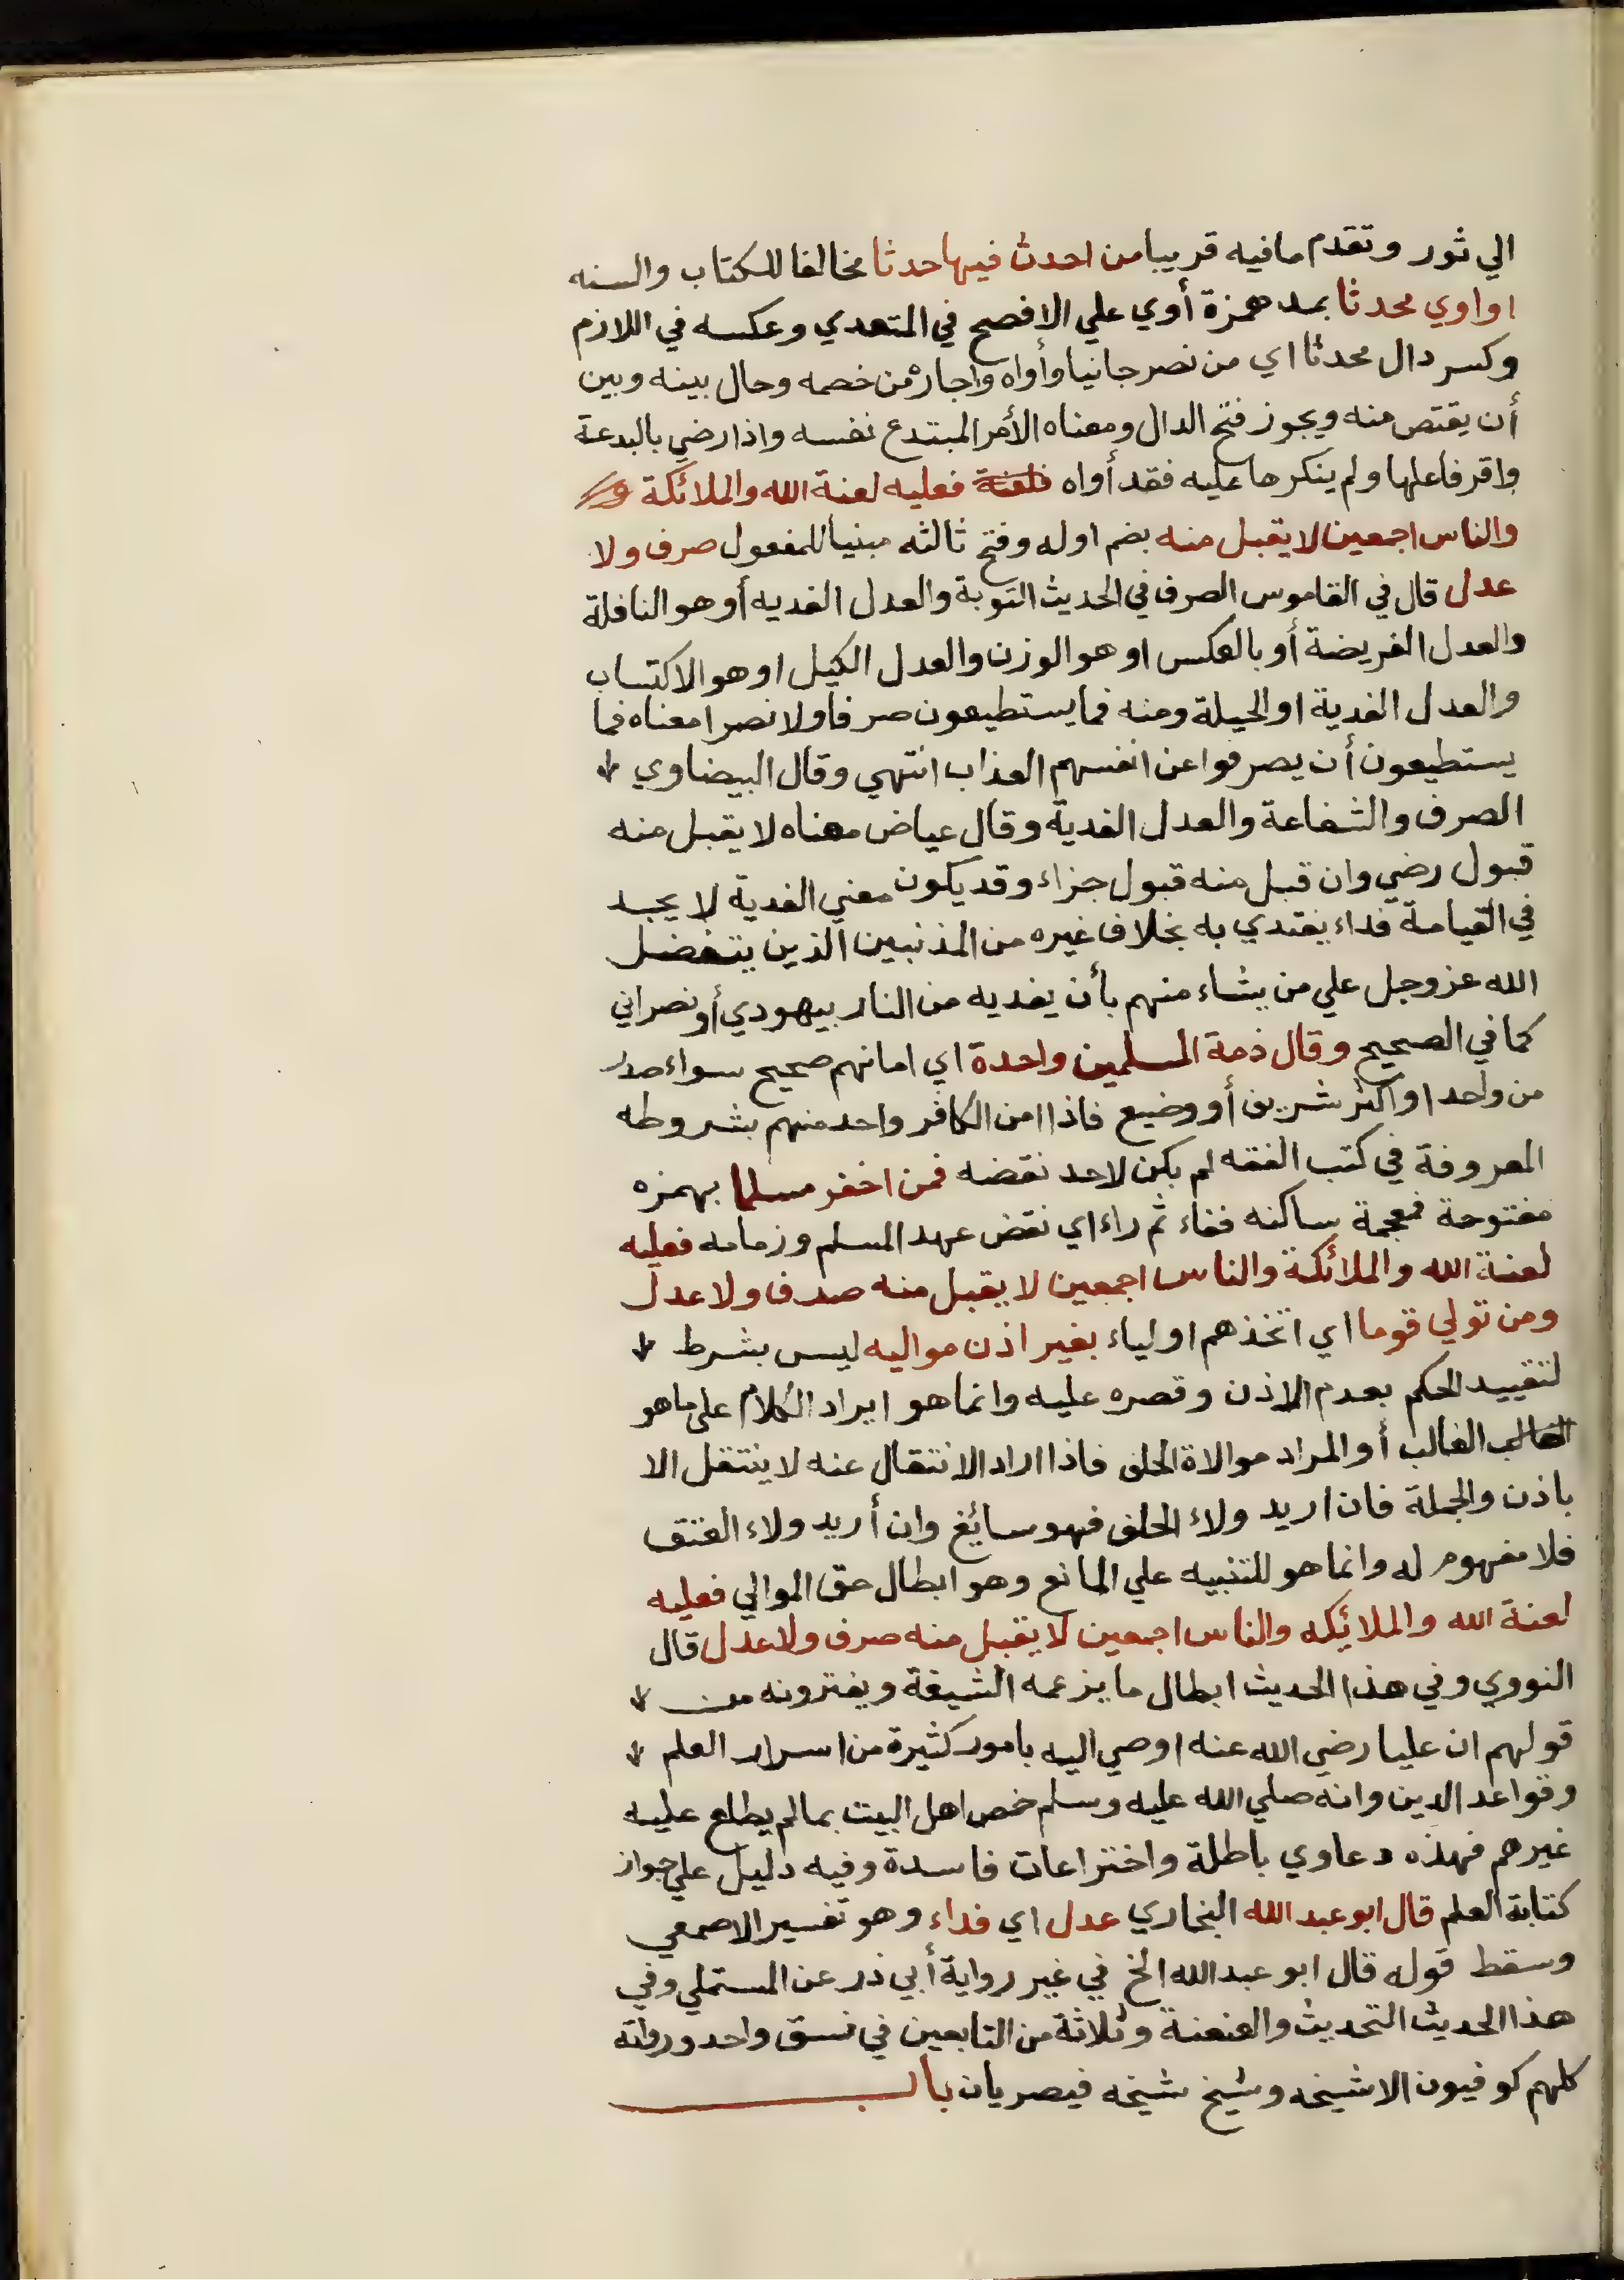 الي ثور وتقدم مافيه قريبا من احدث فيها حدثا مخالفا للكتاب والسنه
او اوي محدثا بمد همزة أوي علي الافصح في المتعدي وعكسه في اللازم
وكسر دال محدثا اي من نصر جانيا وأواه واجاره من خصمه وحال بينه وبين
أن يقتص منه ويجوز فتح الدال ومعناه الأمر المبتدع نفسه واذا رضي بالبدعة
واقر فاعلها ولم ينكرها عليه فقد أواه فعليه لعنة الله والملائكة
والناس اجمعين لا يقبل منه بضم اوله وفتح ثالثه مبنيا للمفعول صرف ولا
عدل قال في القاموس الصرف في الحديث التوبة والعدل الفديه أو هو النافلة
والعدل الفريضة أو بالعكس او هو الوزن والعدل الكيل او هو الاكتساب
والعدل الفدية او الحيلة ومنه فما يستطيعون صرفا ولا نصرا معناه فما
يستطيعون أن يصرفوا عن انفسهم العذاب انتهي وقال البيضاوي
الصرف والشفاعة والعدل الفدية وقال عياض معناه لا يقبل منه
قبول رضي وان قبل منه قبول جزاء وقد يكون معني الفدية لا يجد
في القيامة فداء يفتدي به بخلاف غيره من المذنبين الذين يتفضل
الله عز وجل علي من يشاء منهم بأن يفديه من النار بيهودي أو نصراني
كما في الصحيح وقال ذمة المسلمين واحدة اي امانهم صحيح سواء صدر
من واحد او اكثر شريف أو وضيع فاذا امن الكافر واحد منهم بشروطه
المعروفة في كتب الفقه لم يكن لاحد نقضه فمن اخفر مسلما بهمزه
مفتوحة فمعجمة ساكنه ففاء ثم راء اي نقض عهد المسلم وزمامه فعليه
لعنة الله والملائكة والناس اجمعين لا يقبل منه صرف ولا عدل
ومن تولي قوما اي اتخذهم اولياء بغير اذن مواليه ليس بشرط
لتقييد الحكم بعدم الاذن وقصره عليه وانما هو ايراد الكلام علي ما هو
الغالب أو المراد موالاة الحلف فاذا اراد الانتقال عنه لا ينتقل الا
باذن والجملة فان اريد ولاء الحلف فهو سائغ وان أريد ولاء العتق
فلا مفهوم له وانما هو للتنبيه علي المانع وهو ابطال حق الموالي فعليه
لعنة الله والملائكه والناس اجمعين لا يقبل منه صرف ولا عدل قال
النووي وفي هذا الحديث ابطال ما يزعمه الشيعة ويفترونه من
قولهم ان عليا رضي الله عنه اوصي اليه بامور كثيرة من اسرار العلم
وقواعد الدين وانه صلي الله عليه وسلم خص اهل البيت بما لم يطلع عليه
غيرهم فهذه دعاوي باطلة واختراعات فاسدة وفيه دليل علي جواز
كتابة العلم قال ابو عبد الله البخاري عدل اي فداء وهو تفسير الاصمعي
وسقط قوله قال ابو عبد الله الخ في غير رواية أبي ذر عن المستملي وفي
هذا الحديث التحديث والعنعنة وثلاثة من التابعين في نسق واحد ورواته
كلهم كوفيون الا شيخه وشيخ شيخه فبصريان باب